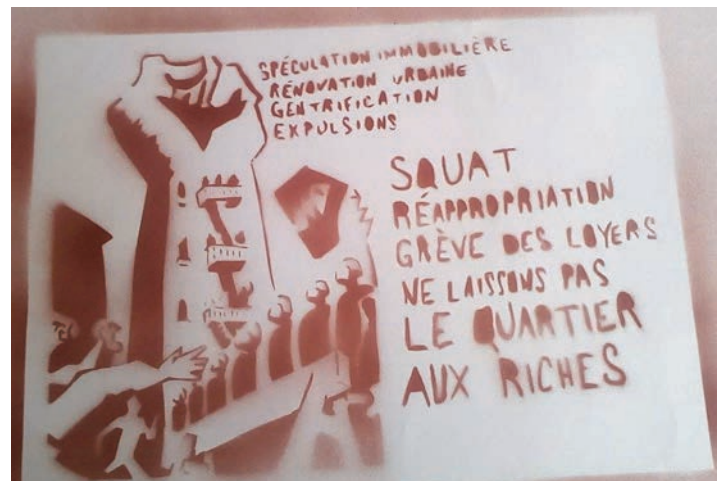 SPÉCULATION IMMOBILIÈRE
RÉNOVATION URBAINE
GENTRIFICATION
EXPULSIONS
SQUAT
RÉAPPROPRIATION
GRÈVE DES LOYERS
NE LAISSONS PAS
LE QUARTIER
AUX RICHES